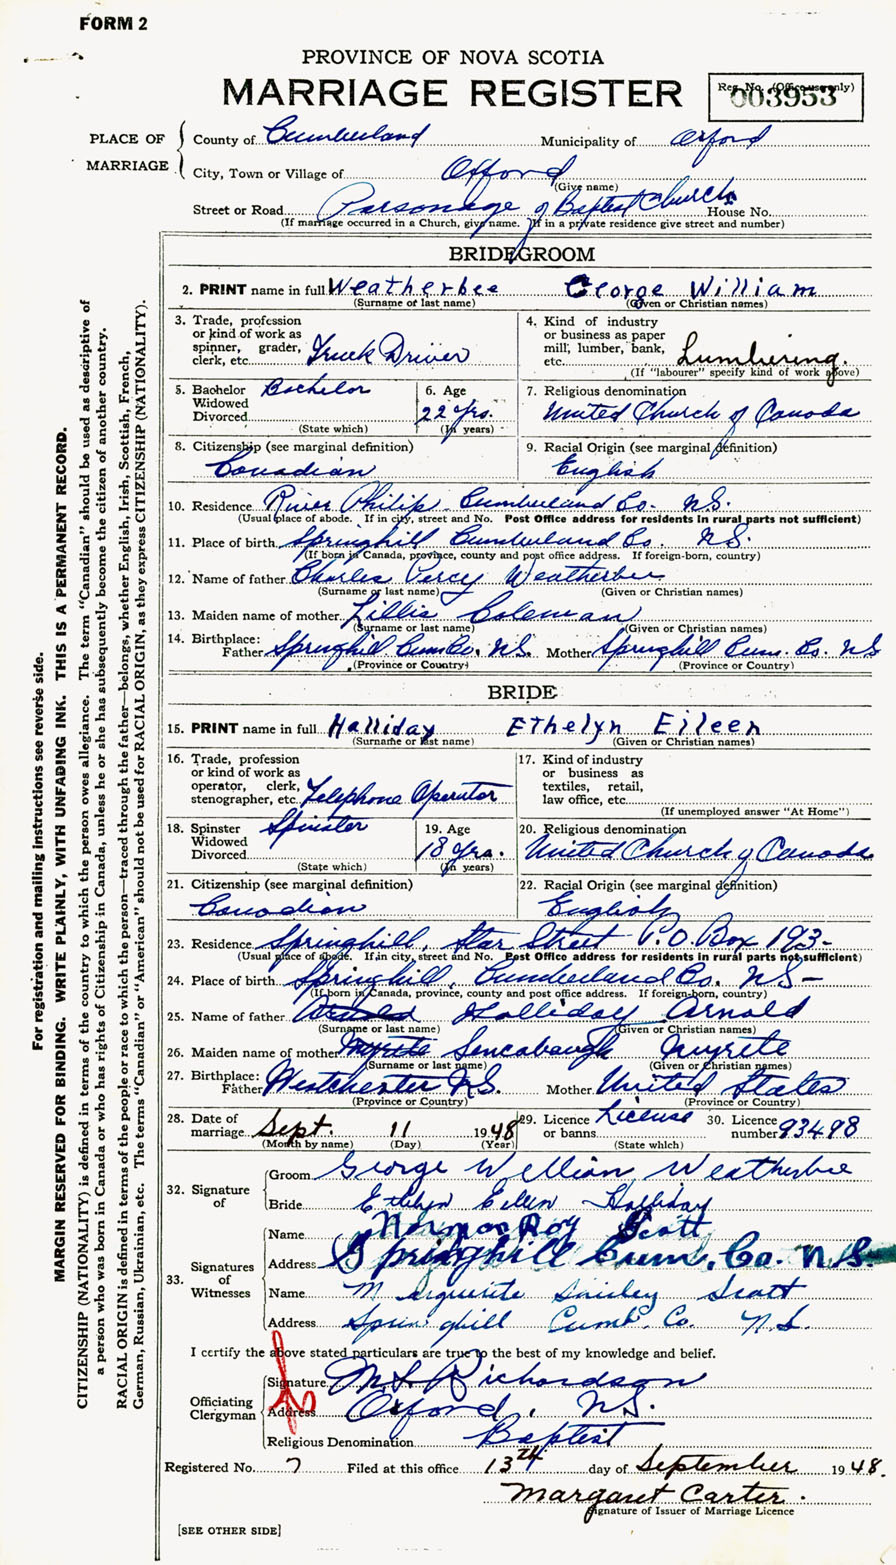 FORM 2
PROVINCE OF NOVA SCOTIA
MARRIAGE REGISTER
Reg. No. (Office use only)
003953
PLACE OF MARRIAGE
County of Cumberland Municipality of Oxford
City, Town or Village of Oxford
(Give name)
Street or Road Parsonage of Baptist Church House No.
(If marriage occurred in a Church, give name. If in a private residence give street and number)
BRIDEGROOM
2. PRINT name in full Weatherbee George William
(Surname or last name) (Given or Christian names)
3. Trade, profession or kind of work as spinner, grader, clerk, etc. Truck Driver
4. Kind of industry or business as paper mill, lumber, bank, etc. Lumbering.
(If "labourer" specify kind of work above)
5. Bachelor Widowed Divorced Bachelor
(State which)
6. Age 22 yrs.
(In years)
7. Religious denomination
United Church of Canada
8. Citizenship (see marginal definition)
Canadian
9. Racial Origin (see marginal definition)
English
10. Residence River Philip Cumberland Co. N.S.
(Usual place of abode. If in city, street and No. Post Office address for residents in rural parts not sufficient)
11. Place of birth Springhill Cumberland Co. N.S.
(If born in Canada, province, county and post office address. If foreign-born, country)
12. Name of father Charles Percy Weatherbee
(Surname or last name) (Given or Christian names)
13. Maiden name of mother Lillis Coleman
(Surname or last name) (Given or Christian names)
14. Birthplace:
Father Springhill Cum Co. N.S. Mother Springhill Cum. Co. N.S
(Province or Country) (Province or Country)
BRIDE
15. PRINT name in full Halliday Ethelyn Eileen
(Surname or last name) (Given or Christian names)
16. Trade, profession or kind of work as operator, clerk, stenographer, etc. Telephone Operator
17. Kind of industry or business as textiles, retail, law office, etc.
(If unemployed answer "At Home")
18. Spinster Widowed Divorced Spinster
(State which)
19. Age 18 yrs.
(In years)
20. Religious denomination
United Church of Canada
21. Citizenship (see marginal definition)
Canadian
22. Racial Origin (see marginal definition)
English
23. Residence Springhill, Star Street P.O. Box 193-
(Usual place of abode. If in city, street and No. Post Office address for residents in rural parts not sufficient)
24. Place of birth Springhill, Cumberland Co. N.S-
(If born in Canada, province, county and post office address. If foreign-born, country)
25. Name of father Arnold Halliday Arnold
(Surname or last name) (Given or Christian names)
26. Maiden name of mother Myrtte Sencabaugh Myrtte
(Surname or last name) (Given or Christian names)
27. Birthplace:
Father Westchester N.S. Mother United States
(Province or Country) (Province or Country)
28. Date of marriage Sept. 11 1948
(Month by name) (Day) (Year)
29. Licence or banns License
(State which)
30. Licence number 93498
32. Signature of
Groom George William Weatherbee
Bride Ethelyn Eileen Halliday
33. Signatures of Witnesses
Name Norman Roy Scott
Address Springhill Cum. Co. N.S.
Name Marguerite Shirley Scott
Address Springhill Cumb. Co. N.S.
I certify the above stated particulars are true to the best of my knowledge and belief.
Officiating Clergyman
Signature M S Richardson
Address Oxford, N.S.
Religious Denomination Baptist
Registered No. 7 Filed at this office 13th day of September 1948.
Margaret Carter.
Signature of Issuer of Marriage Licence
[SEE OTHER SIDE]
For registration and mailing instructions see reverse side.
MARGIN RESERVED FOR BINDING. WRITE PLAINLY, WITH UNFADING INK. THIS IS A PERMANENT RECORD.
CITIZENSHIP (NATIONALITY) is defined in terms of the country to which the person owes allegiance. The term "Canadian" should be used as descriptive of
a person who was born in Canada or who has rights of Citizenship in Canada, unless he or she has subsequently become the citizen of another country.
RACIAL ORIGIN is defined in terms of the people or race to which the person—traced through the father—belongs, whether English, Irish, Scottish, French,
German, Russian, Ukrainian, etc. The terms "Canadian" or "American" should not be used for RACIAL ORIGIN, as they express CITIZENSHIP (NATIONALITY).